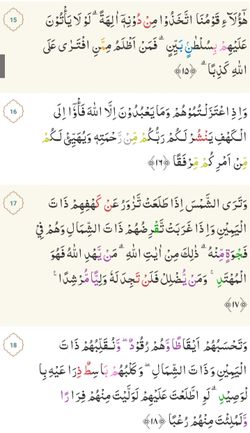 ١٥
هٰٓؤُلَآءِ قَوْمُنَا اتَّخَذُوْا مِنْ دُوْنِهٖٓ اٰلِهَةًۗ لَوْ لَا يَأْتُوْنَ
عَلَيْهِمْ بِسُلْطٰنٍۢ بَيِّنٍۗ فَمَنْ اَظْلَمُ مِمَّنِ افْتَرٰى عَلَى
اللّٰهِ كَذِبًاۗ ﴿١٥﴾
١٦
وَاِذِ اعْتَزَلْتُمُوْهُمْ وَمَا يَعْبُدُوْنَ اِلَّا اللّٰهَ فَأْوٗٓا اِلَى
الْكَهْفِ يَنْشُرْ لَكُمْ رَبُّكُمْ مِّنْ رَّحْمَتِهٖ وَيُهَيِّئْ لَكُمْ
مِّنْ اَمْرِكُمْ مِّرْفَقًا ﴿١٦﴾
١٧
وَتَرَى الشَّمْسَ اِذَا طَلَعَتْ تَّزٰوَرُ عَنْ كَهْفِهِمْ ذَاتَ
الْيَمِيْنِ وَاِذَا غَرَبَتْ تَّقْرِضُهُمْ ذَاتَ الشِّمَالِ وَهُمْ فِيْ
فَجْوَةٍ مِّنْهُۗ ذٰلِكَ مِنْ اٰيٰتِ اللّٰهِۗ مَنْ يَّهْدِ اللّٰهُ فَهُوَ
الْمُهْتَدِۚ وَمَنْ يُّضْلِلْ فَلَنْ تَجِدَ لَهٗ وَلِيًّا مُّرْشِدًا ۚ
﴿١٧﴾
١٨
وَتَحْسَبُهُمْ اَيْقَاظًا وَّهُمْ رُقُوْدٌۖ وَّنُقَلِّبُهُمْ ذَاتَ
الْيَمِيْنِ وَذَاتَ الشِّمَالِۖ وَكَلْبُهُمْ بَاسِطٌ ذِرَاعَيْهِ بِا
لْوَصِيْدِۗ لَوِ اطَّلَعْتَ عَلَيْهِمْ لَوَلَّيْتَ مِنْهُمْ فِرَارًا
وَّلَمُلِئْتَ مِنْهُمْ رُعْبًا ﴿١٨﴾